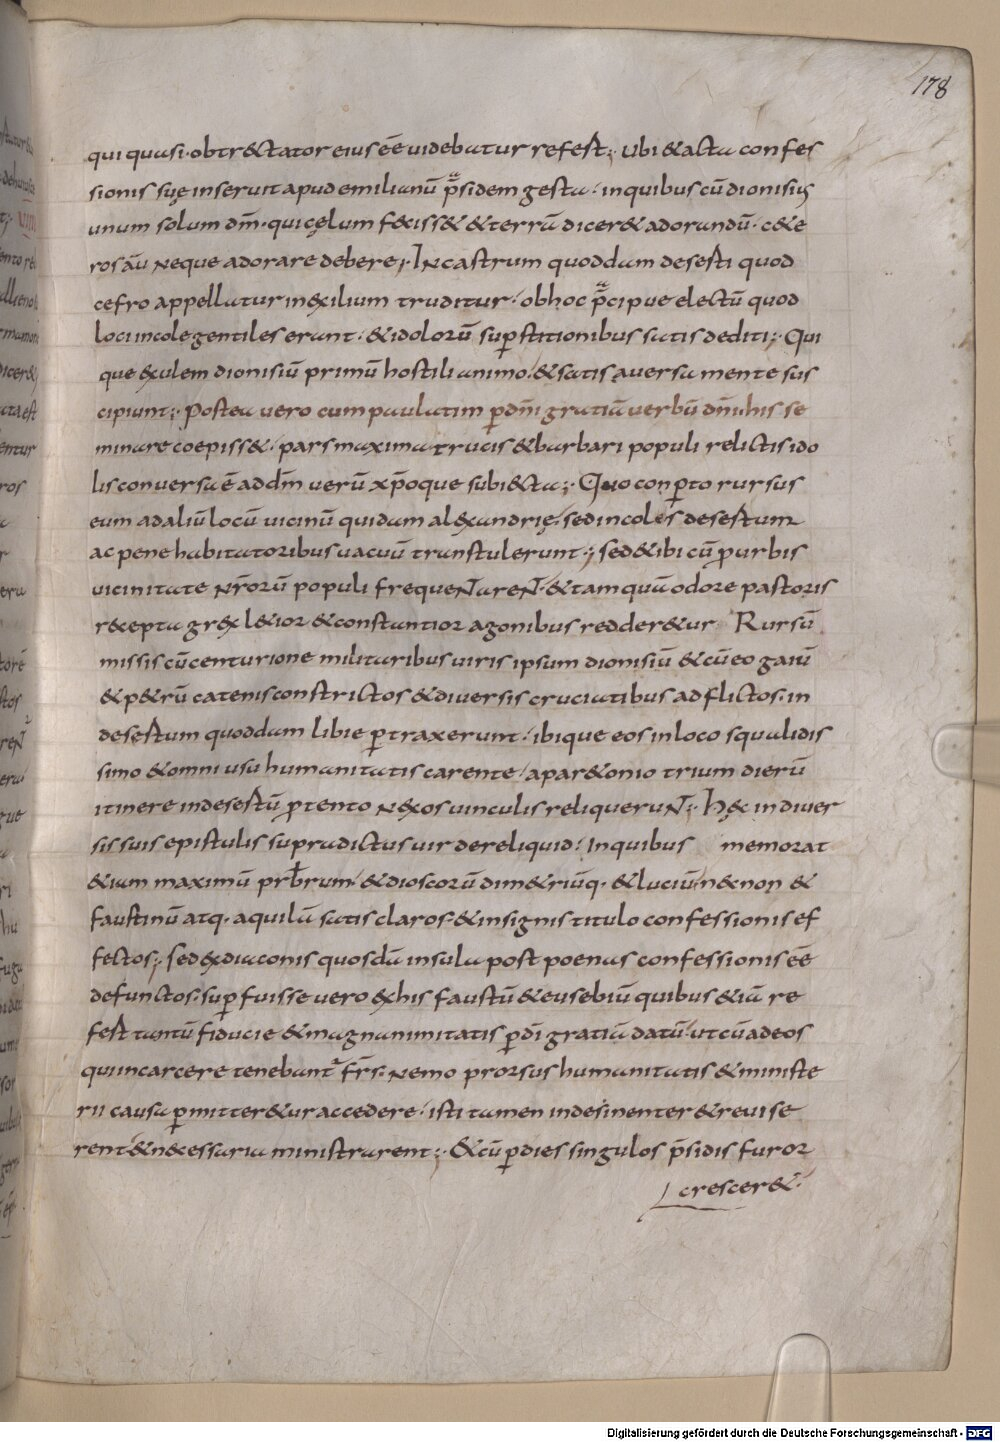 178
qui quasi · obtr&ctator eius eē uidebatur refest; Ubi & acta confes
sionis suę inseruit apud emilianū p̄sidem gesta · in quibus cū dionisiꝰ
unum solum dm̄ · qui cęlum f&iss& & terrā dicer& adorandū · c&e
ros aū neque adorare debere; In castrum quoddam desesti quod
cefro appellatur in exilium truditur · ob hoc p̄cipue electū quod
loci incole gentiles erant · & idolorū suꝑstitionibus satis dediti; Qui
que exulem dionisiū primū hostili animo · & satis auersa mente sus
cipiunt; Postea uero cum paulatim ꝑ dm̄i gratiā uerbū dm̄i his se
minare coepiss& · pars maxima trucis & barbari populi relictis ido
lis conuersa ē ad dm̄ uerū xp̄oque subiecta; Quo conꝑto rursus
eum ad aliū locū uicinū quidam alexandrię · sed incolis desestum
ac pene habitatoribus uacuū transtulerunt; sed & ibi cū ꝓ urbis
uicinitate nr̄orū populi frequentarent · & tamquā odore pastoris
recepta grex l&ior & constantior agonibus redder&ur Rursū
missis cū centurione militaribus uiris ipsum dionisiū & cū eo gaiū
& p&rū catenis constrictos & diuersis cruciatibus adflictos · in
desestum quoddam libie ꝑtraxerunt · ibique eos in loco squalidis
simo & omni usu humanitatis carente · a par&onio trium dierū
itinere in desestū ꝓtento nexos uinculis reliquerunt; Hec in diuer
sis suis epistulis supradictus uir dereliquid · In quibus memorat
&iam maximū prb̄rum · & dioscorū dim&riūq· & luciū n&non &
faustinū atq· aquilā satis claros · & insignis titulo confessionis ef
fectos; sed ex diaconis quosdā insula post poenas confessionis eē
defunctos · suꝑfuisse uero ex his faustū & eusebiū quibus &iā re
fest tantū fiducie & magnanimitatis ꝑ dī gratiā datū · ut cū ad eos
qui in carcere tenebantur frs̄ · nemo prorsus humanitatis & ministe
rii causa ꝑmitter&ur accedere · isti tamen indesinenter & reuise
rent & necessaria ministrarent; & cū ꝑ dies singulos p̄sidis furor
crescer& ·
Digitalisierung gefördert durch die Deutsche Forschungsgemeinschaft - DFG